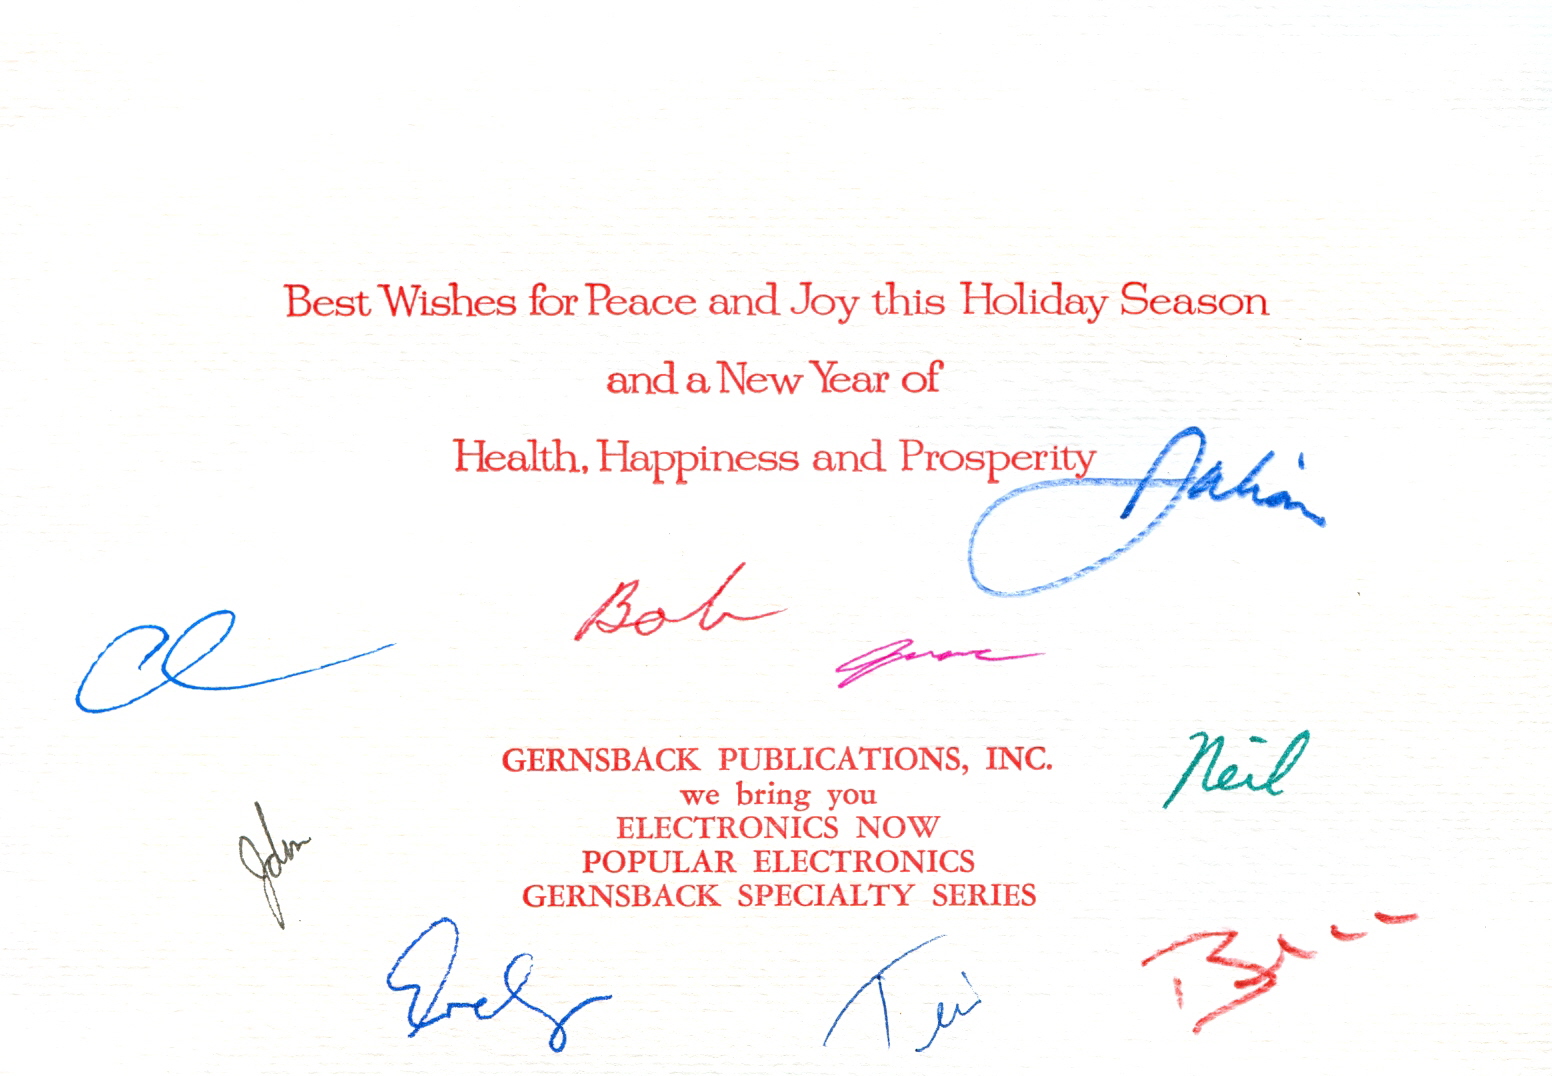 Best Wishes for Peace and Joy this Holiday Season
and a New Year of
Health, Happiness and Prosperity
Julian
Bob
Neil
GERNSBACK PUBLICATIONS, INC.
we bring you
ELECTRONICS NOW
POPULAR ELECTRONICS
GERNSBACK SPECIALTY SERIES
John
Evelyn
Teri